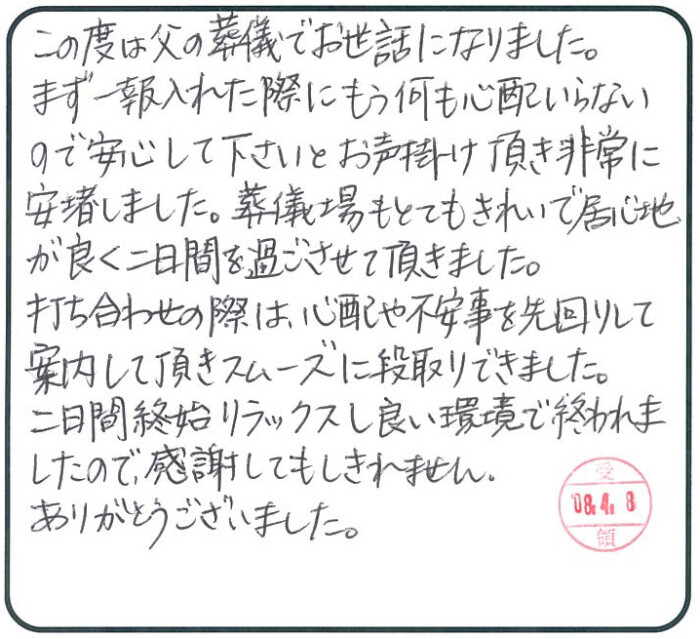 この度は父の葬儀でお世話になりました。
まず一報入れた際にもう何も心配いらない
ので安心して下さいとお声掛け頂き非常に
安堵しました。葬儀場もとてもきれいで居心地
が良く二日間を過ごさせて頂きました。
打ち合わせの際は、心配や不安事を先回りして
案内して頂きスムーズに段取りできました。
二日間終始リラックスし良い環境で終われま
したので、感謝してもしきれません.
ありがとうございました。
受
'08.4.8
領